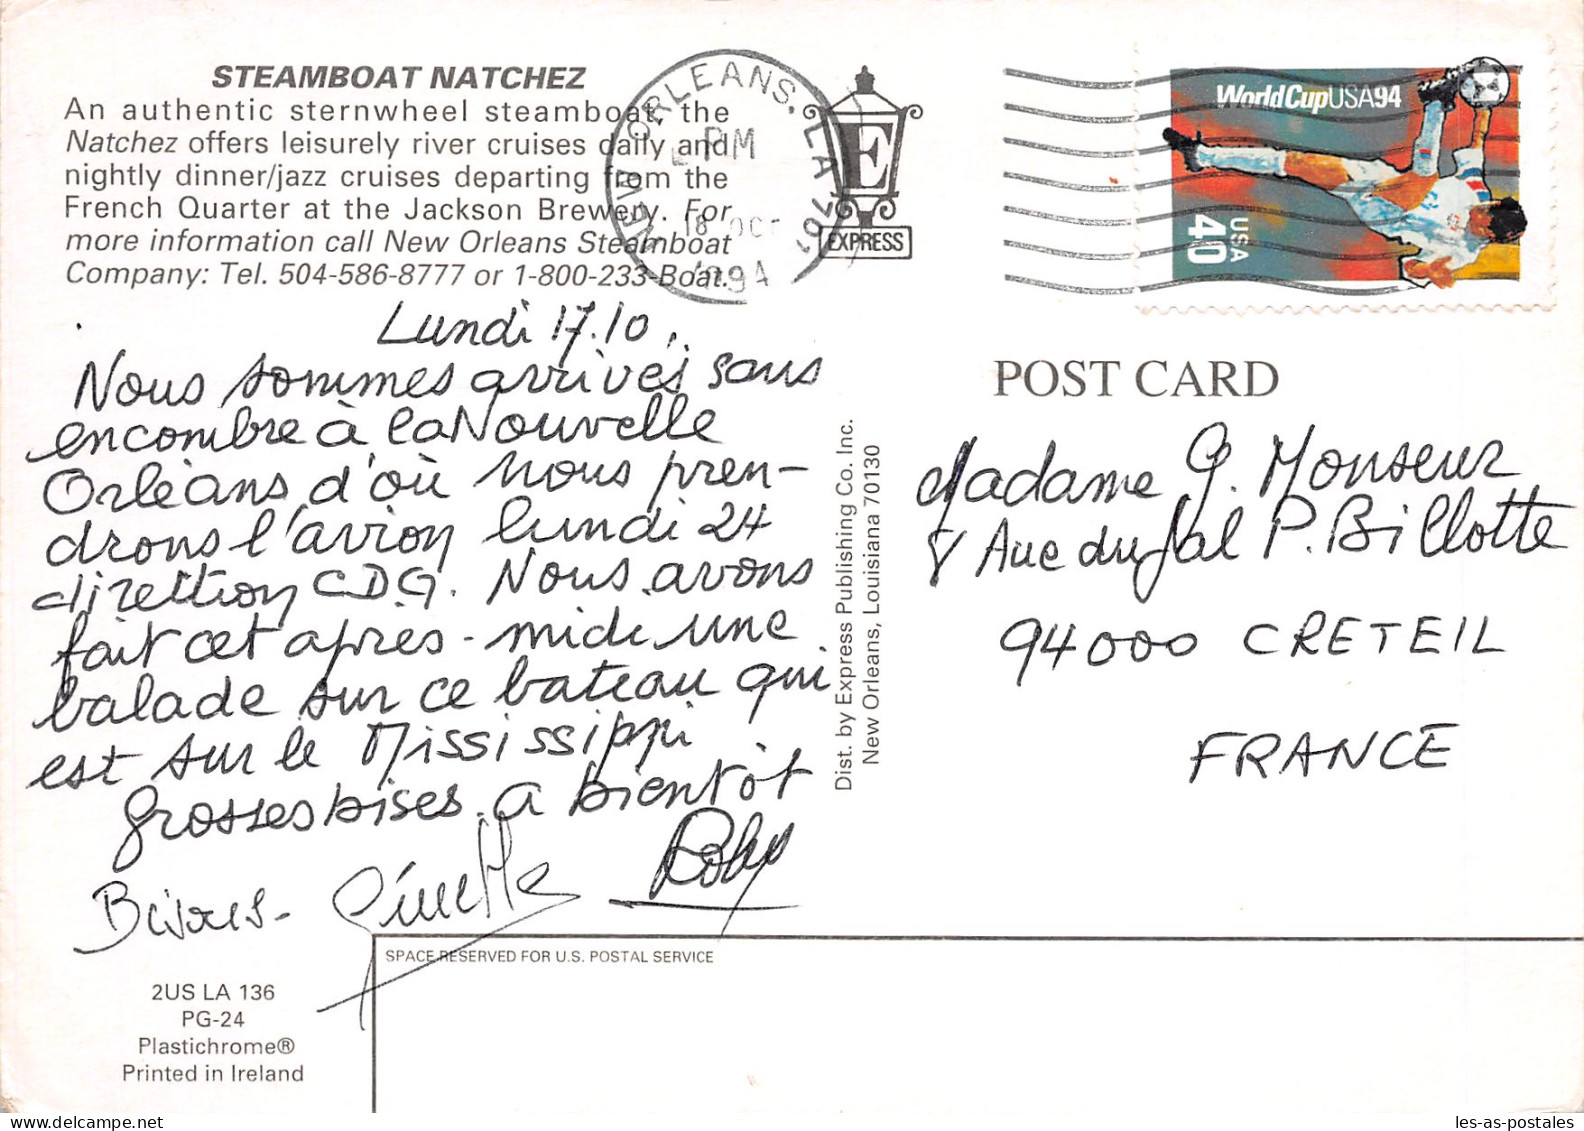 STEAMBOAT NATCHEZ
An authentic sternwheel steamboat, the
Natchez offers leisurely river cruises daily and
nightly dinner/jazz cruises departing from the
French Quarter at the Jackson Brewery. For
more information call New Orleans Steamboat
Company: Tel. 504-586-8777 or 1-800-233-Boat.
NEW ORLEANS, LA 701
PM
18 OCT
1994
E
EXPRESS
WorldCupUSA94
USA
40
Lundi 17.10.
Nous sommes arrivés sans
encombre à la Nouvelle
Orléans d'où nous pren-
drons l'avion lundi 24
direction CDG. Nous avons
fait cet après-midi une
balade sur ce bateau qui
est sur le Mississippi
grosses bises. a bientôt
Bisous-
POST CARD
Madame G. Monseur
8 Aue du Mal P. Billotte
94000 CRETEIL
FRANCE
Dist. by Express Publishing Co. Inc.
New Orleans, Louisiana 70130
SPACE RESERVED FOR U.S. POSTAL SERVICE
2US LA 136
PG-24
Plastichrome®
Printed in Ireland
les-as-postales